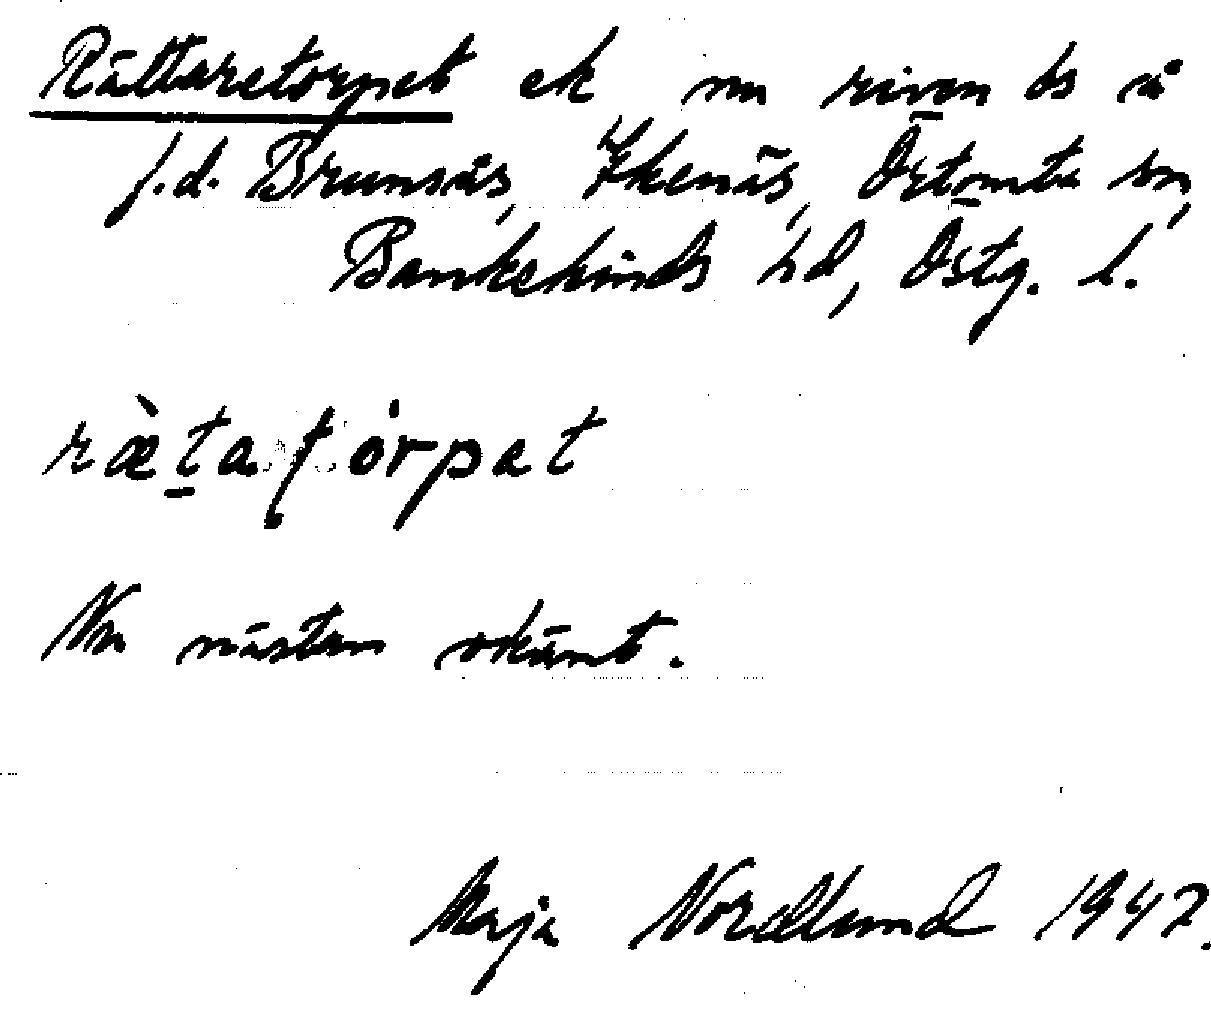 Rättaretorpet ek nu riven bs å
f.d. Brunsås, Ekenäs, Örtomta sn,
Bankekinds hd, Östg. l.
ræ̀tatórpat
Nu nästan okänt.
Maja Nordlund 1947.